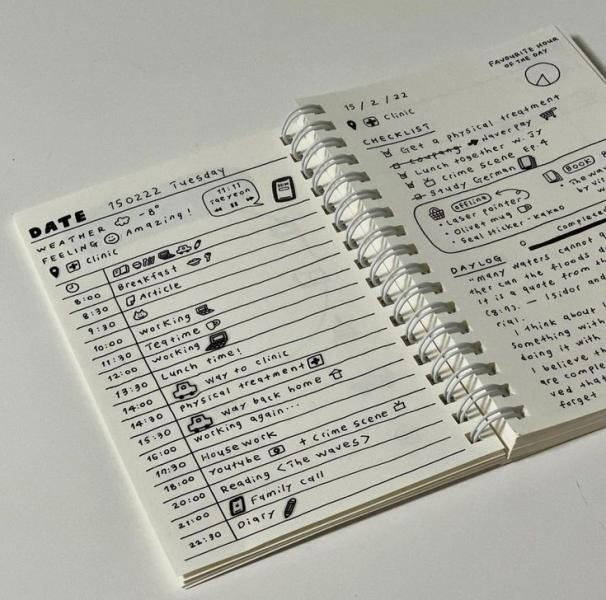 DATE 150222 Tuesday
WEATHER -8°
FEELING Amazing!
clinic
11:11
Taeyeon
8:00 Breakfast
8:30 Article
9:30
10:00 working
11:30 Teatime
12:00 working
13:30 Lunch time!
14:00 way to clinic
14:30 physical treatment
15:30 way back home
16:00 working again...
17:30 Housework
18:00 Youtube + Crime scene
20:00 Reading <The Waves>
21:00 Family call
22:30 Diary
FAVOURITE HOUR
OF THE DAY
15/2/22
clinic
CHECKLIST
Get a physical treatment
coupang → Naver pay
Lunch together w. JY
Crime scene Ep.4
Study German
offline
• Laser pointer
• Olivet mug
• Seal sticker - kakao
BOOK
The wav
by Vi
DAYLOG
"many waters cannot q
ther can the floods d
It is a quote from t
(8:7). — Isidor and
rial.
I think about
something with
doing it with
I believe th
are comple
ved that
forget